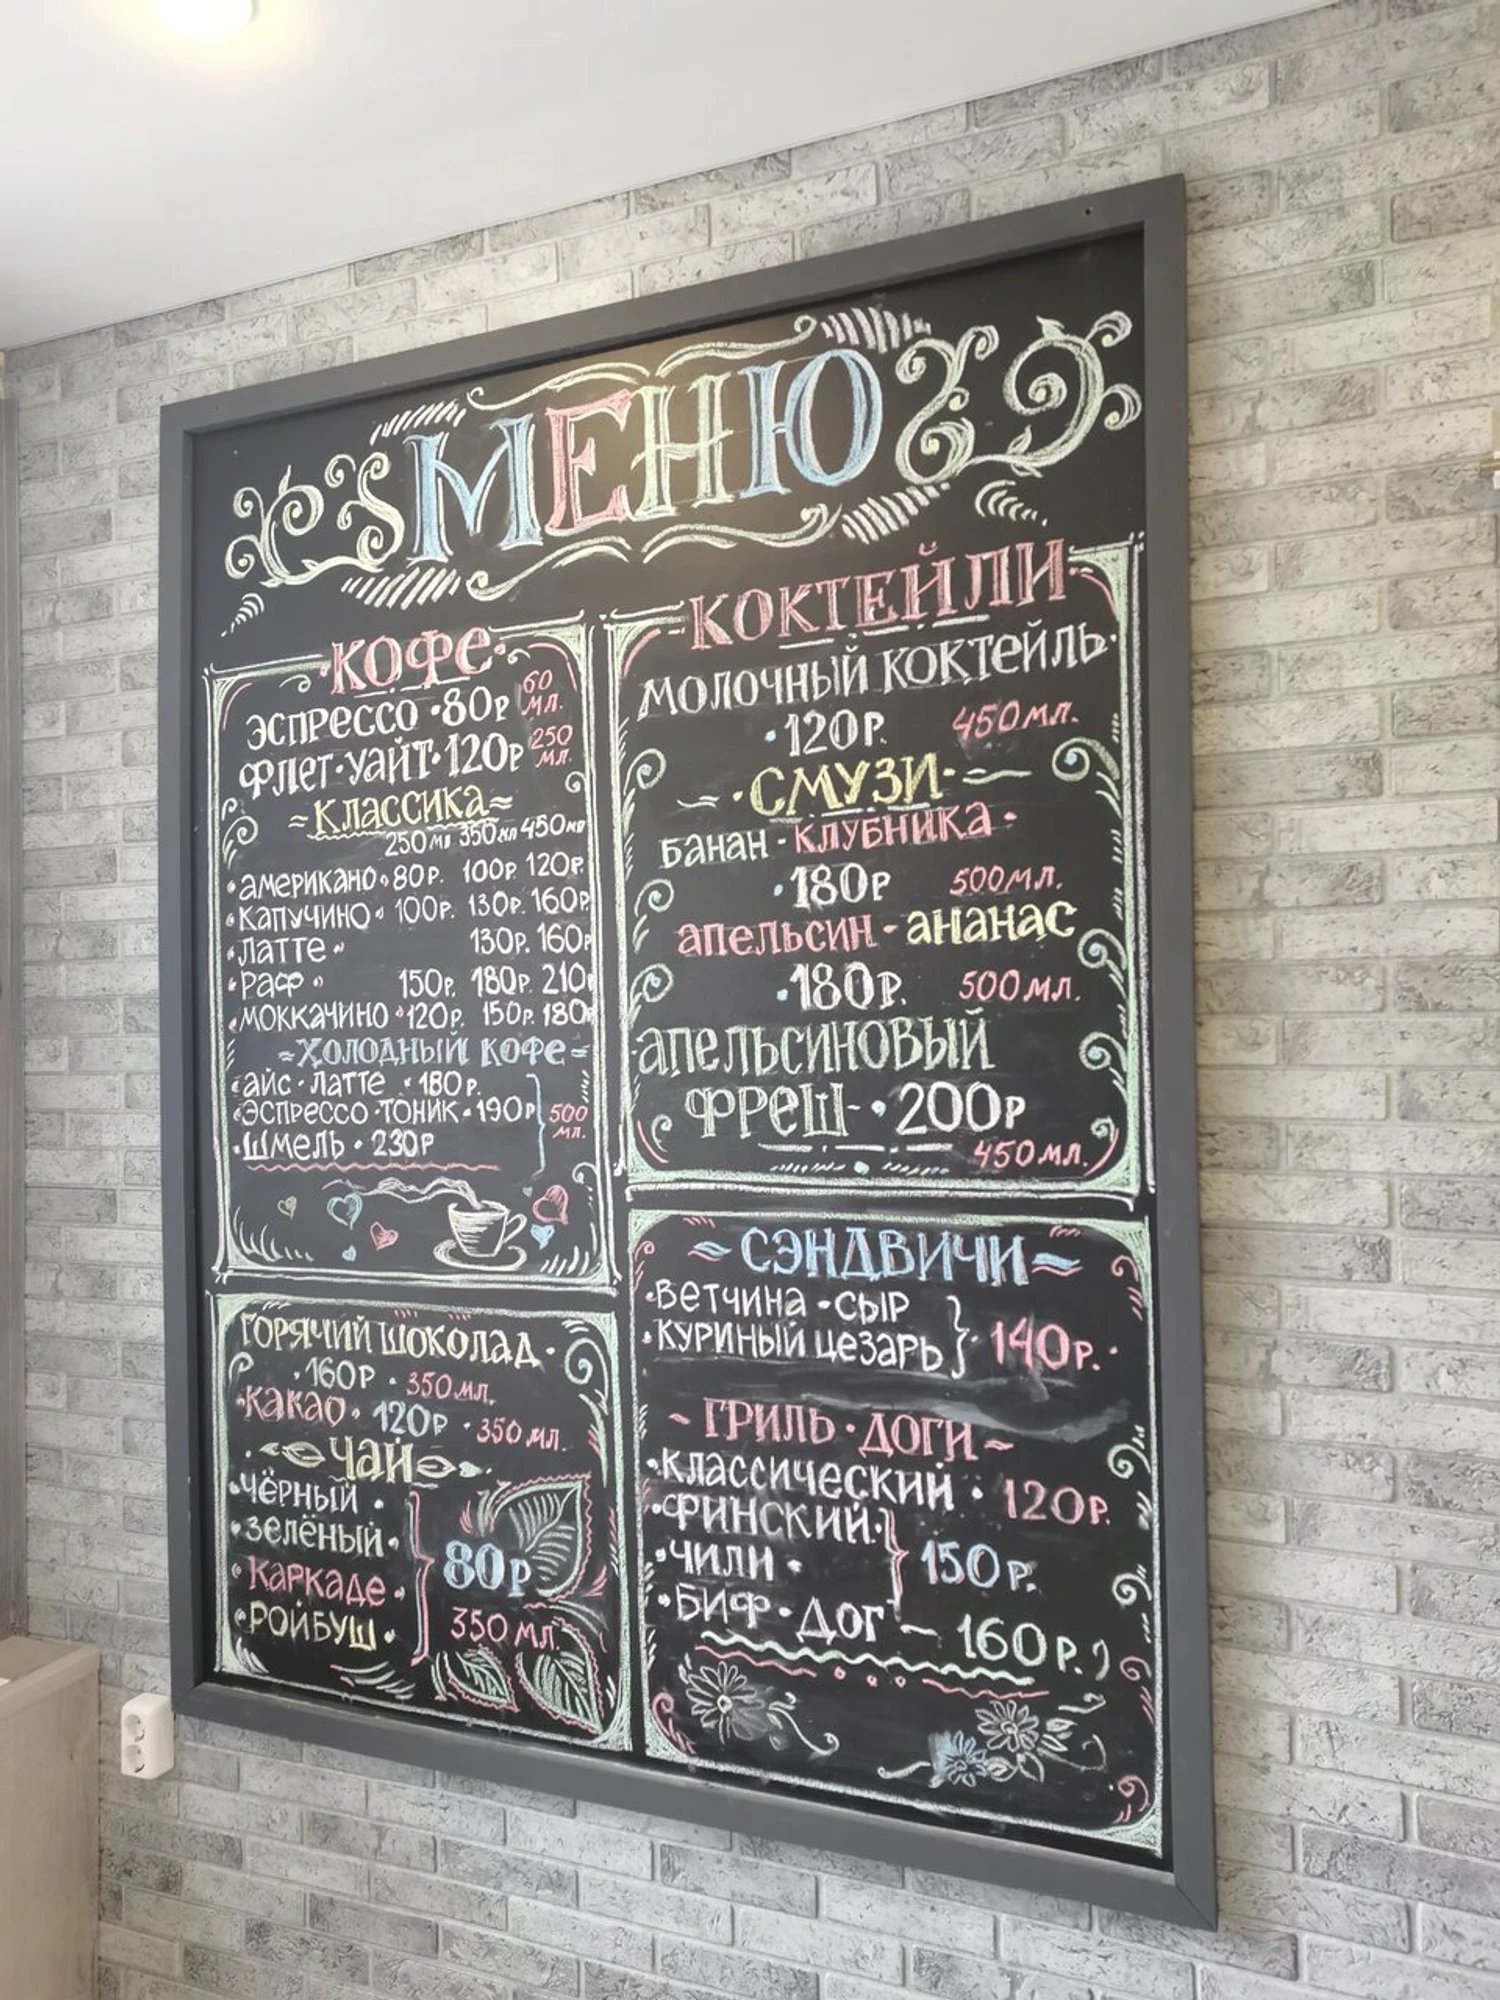 МЕНЮ
КОФЕ
ЭСПРЕССО • 80Р 60 МЛ.
ФЛЕТ • УАЙТ • 120Р 250 МЛ.
КЛАССИКА
250 МЛ 350 МЛ 450 МЛ
• АМЕРИКАНО • 80Р. 100Р. 120Р.
• КАПУЧИНО • 100Р. 130Р. 160Р.
• ЛАТТЕ • 130Р. 160Р
• РАФ • 150Р. 180Р. 210
• МОККАЧИНО • 120Р. 150Р. 180
ХОЛОДНЫЙ КОФЕ
• АЙС • ЛАТТЕ • 180Р.
• ЭСПРЕССО • ТОНИК • 190Р
• ШМЕЛЬ • 230Р
500 МЛ.
ГОРЯЧИЙ ШОКОЛАД •
• 160Р • 350 МЛ.
• КАКАО • 120Р • 350 МЛ.
ЧАЙ
• ЧЁРНЫЙ •
• ЗЕЛЁНЫЙ •
• КАРКАДЕ •
• РОЙБУШ •
80Р
350 МЛ.
КОКТЕЙЛИ
МОЛОЧНЫЙ КОКТЕЙЛЬ •
• 120Р. 450 МЛ.
СМУЗИ
БАНАН - КЛУБНИКА •
• 180Р 500 МЛ.
АПЕЛЬСИН - АНАНАС
• 180Р. 500 МЛ.
АПЕЛЬСИНОВЫЙ
ФРЕШ - • 200Р
450 МЛ.
~ СЭНДВИЧИ ~
• ВЕТЧИНА - СЫР
• КУРИНЫЙ ЦЕЗАРЬ
140Р. •
~ ГРИЛЬ • ДОГИ ~
• КЛАССИЧЕСКИЙ • 120Р.
• ФИНСКИЙ •
• ЧИЛИ •
150Р.
• БИФ • ДОГ ~ 160Р.